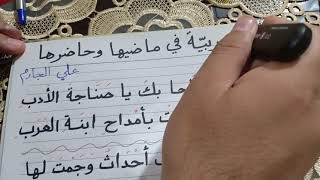 بيّة في ماضيها وحاضرها
علي الجارم
حا بكَ يا صَناجةَ الأدب
بأمْداحِ ابنَةِ العَرَب
أحداثٌ وَجَمْتَ لها